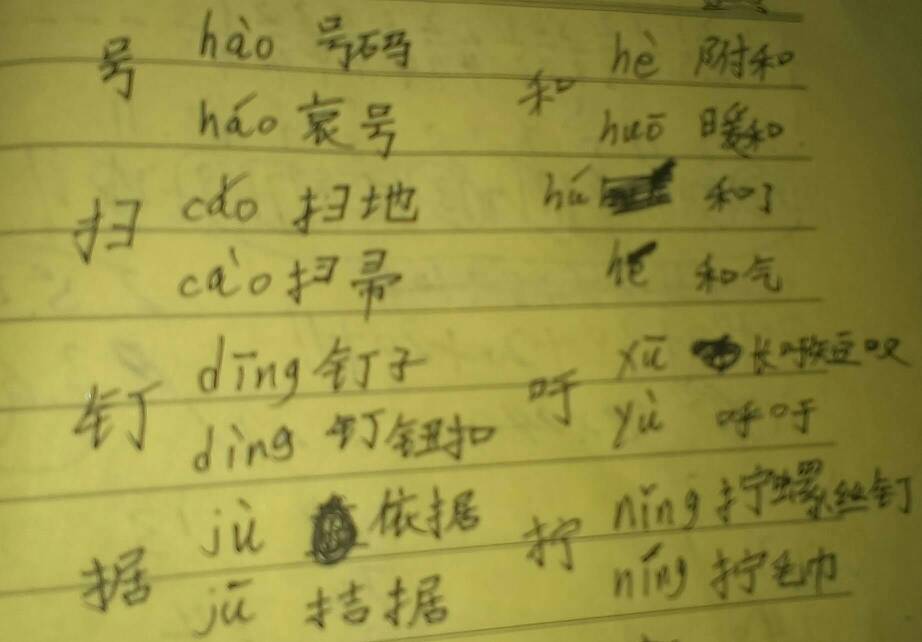 号
hào 号码
háo 哀号
扫
cǎo 扫地
cào 扫帚
钉
dīng 钉子
dìng 钉钮扣
据
jù 依据
jū 拮据
和
hè 附和
huō 暖和
hú 和了
hé 和气
吁
xū 长吁短叹
yù 呼吁
拧
nǐng 拧螺丝钉
níng 拧毛巾